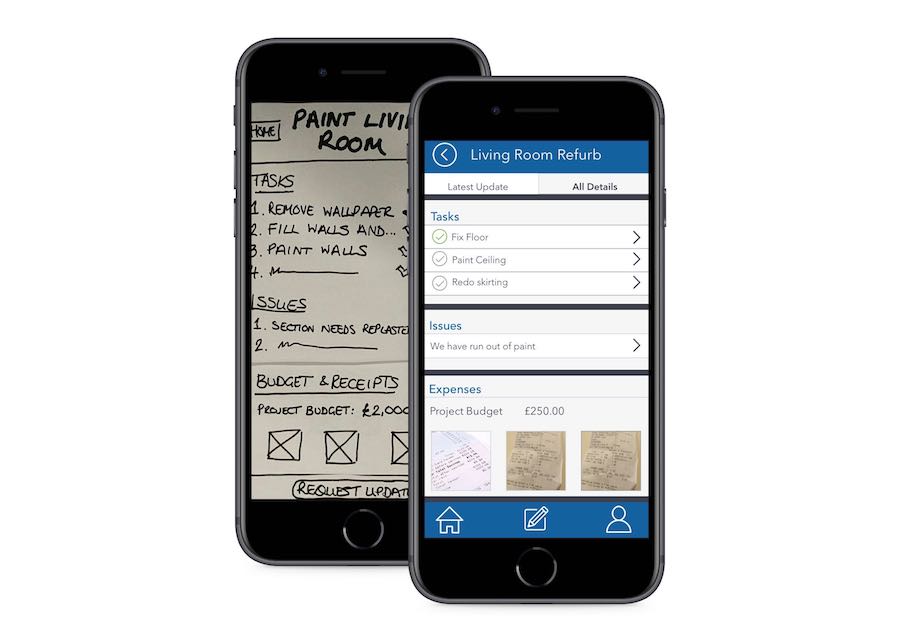 HOME
PAINT LIVIN
ROOM
TASKS
1. REMOVE WALLPAPER
2. FILL WALLS AND...
3. PAINT WALLS
4.
ISSUES
1. SECTION NEEDS REPLASTE
2.
BUDGET & RECEIPTS
PROJECT BUDGET: £2,000
REQUEST UPDAT
Living Room Refurb
Latest Update All Details
Tasks
Fix Floor
Paint Ceiling
Redo skirting
Issues
We have run out of paint
Expenses
Project Budget £250.00